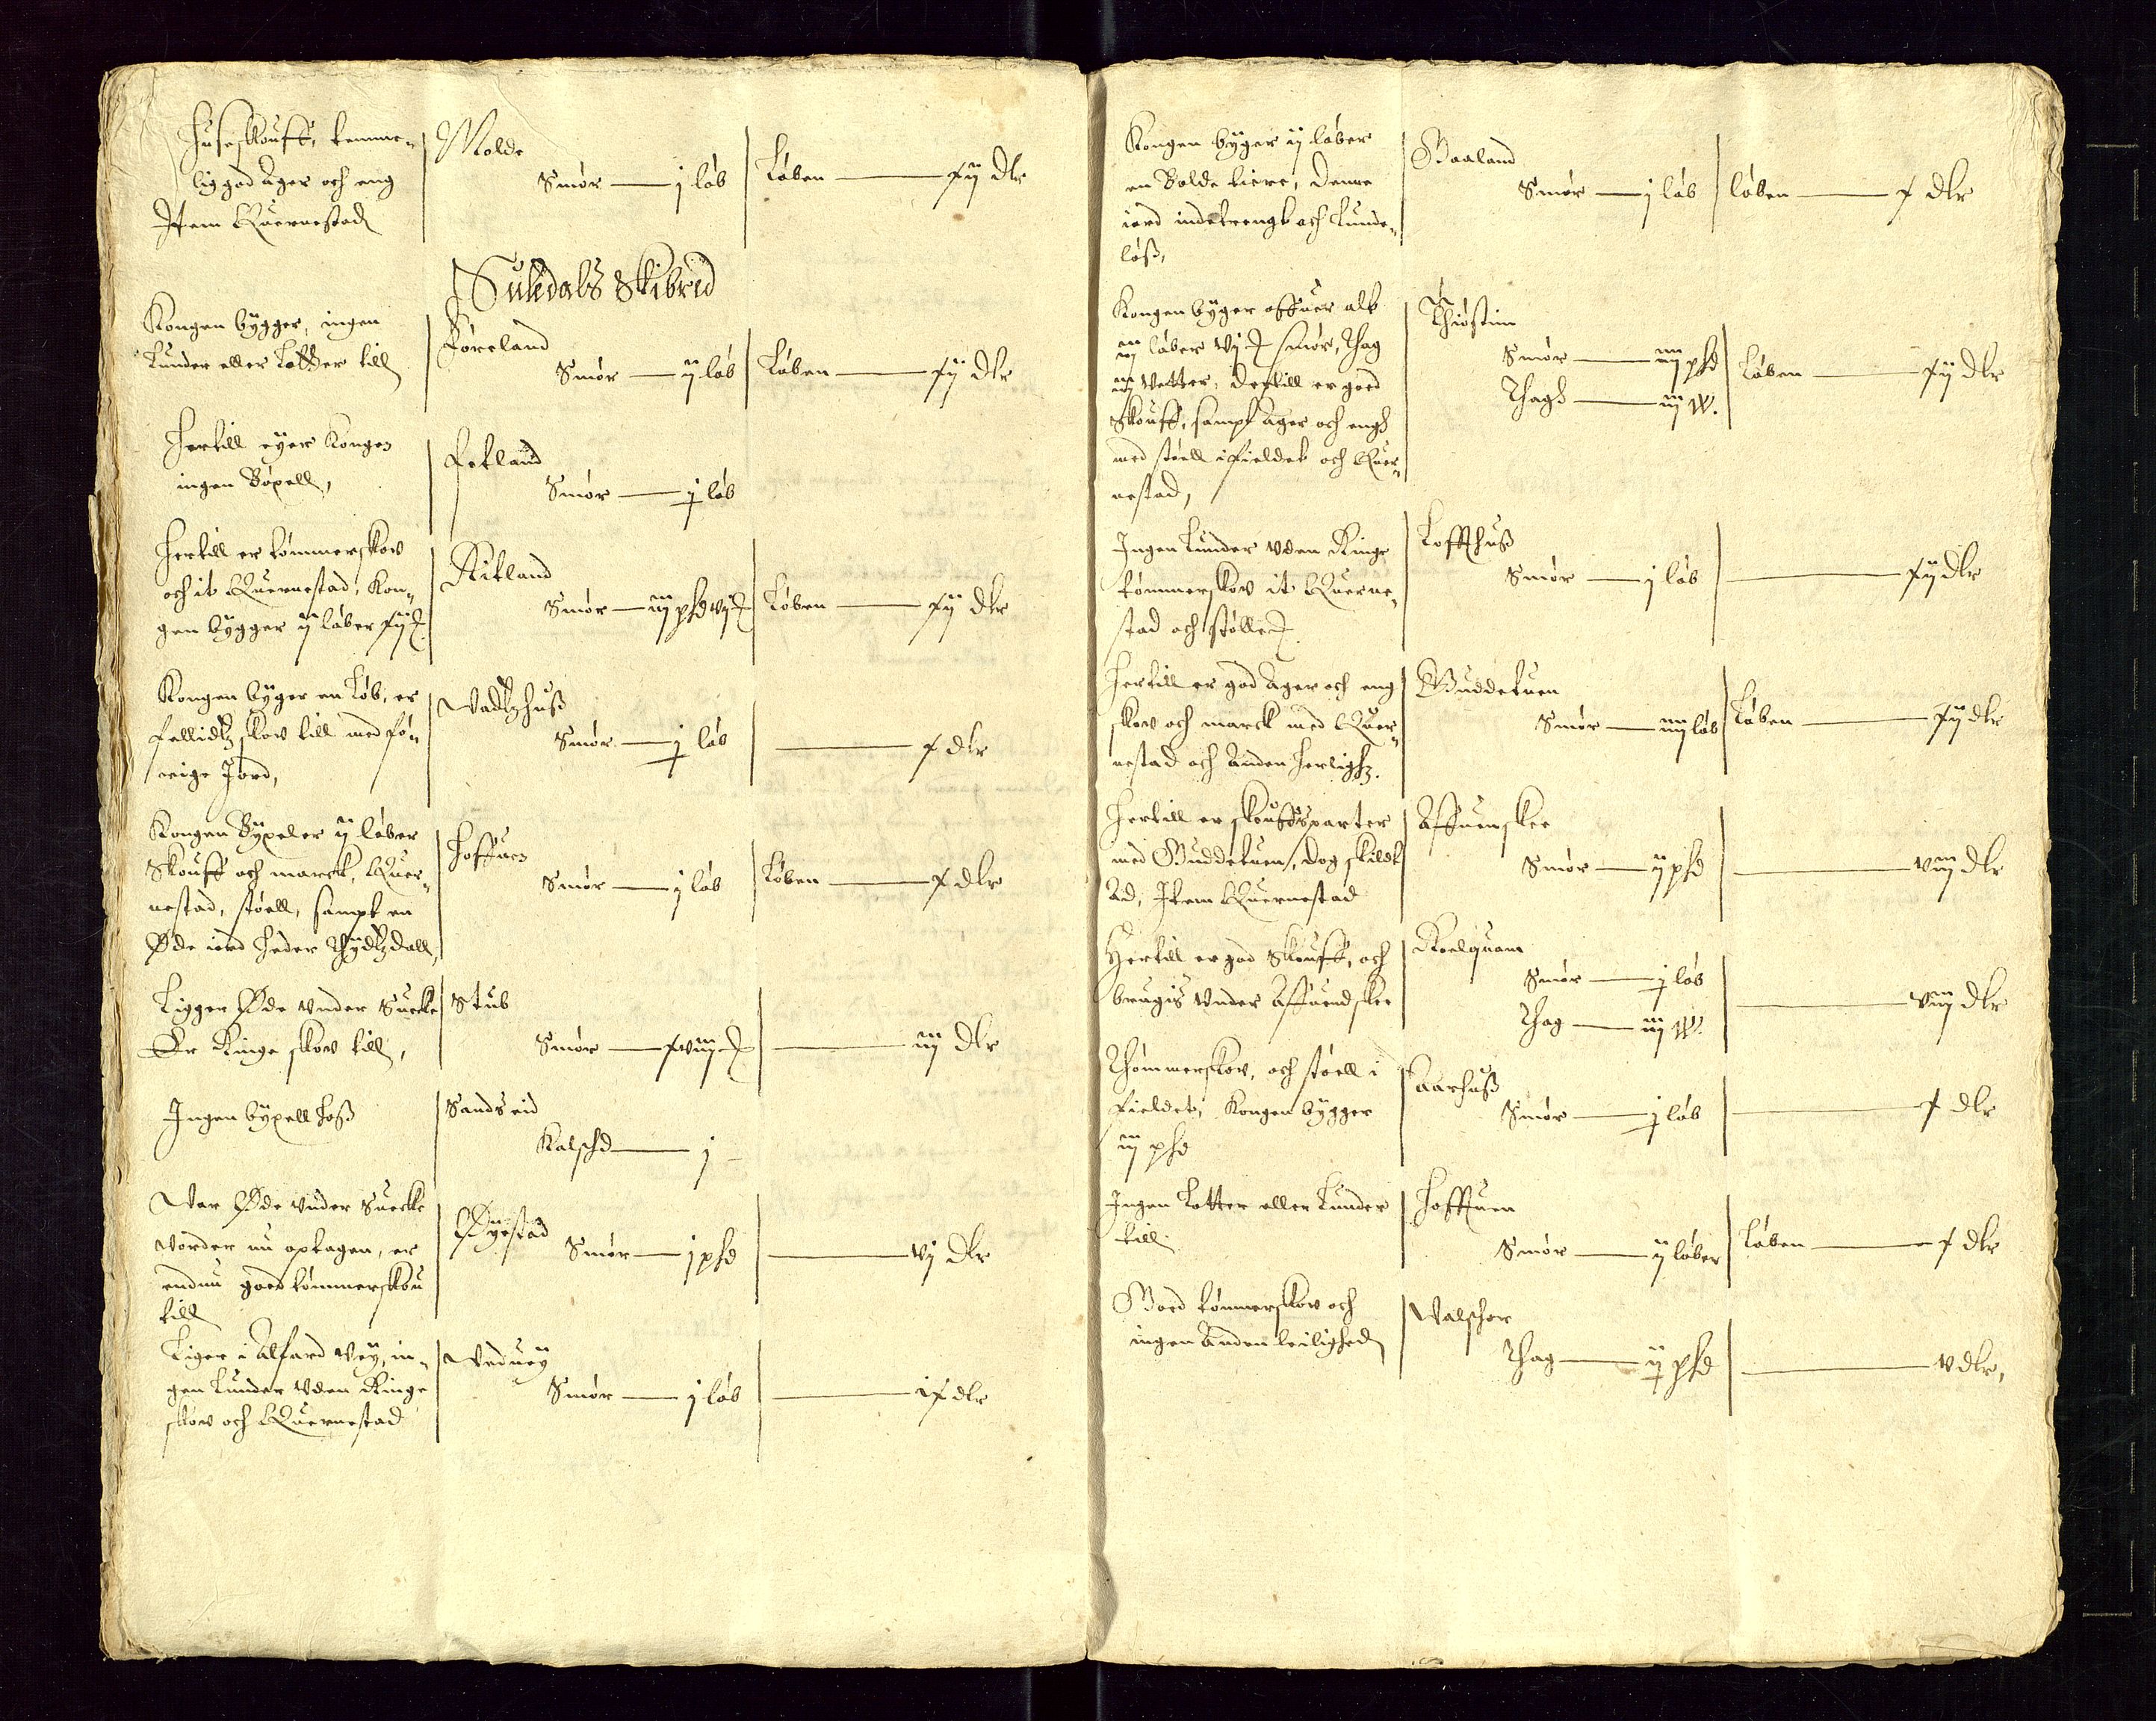 Huseskouff, temme-
lig god Ager och eng
Item Querenestad
Molde
Smør — j løb
Løben — xij dlr
Suledals Skibred
Kongen bygger, ingen
Lunder eller Lotter till
Føreland
Smør — ij løb
Løben — xij dlr
Hertill eyer Kongen
ingen Bøxell,
Fetland
Smør — j løb
Hertill er tømmerskov
och it Querenestad, Kon-
gen bygger ij løber
Ritland
Smør — iij phd vj
Løben — xij dlr
Kongen byger en Løb, er
skov till med før-
rige Jord,
Vadtzhuss
Smør — j løb
— x dlr
Kongen Bÿxeler ij løber
Skouff och marck, Quer-
nestad, støell, sampt en
Øde iord heder
Hoffuen
Smør — j løb
Løben — x dlr
Ligger Øde under Suecke
Er Ringe skov till,
Stub
Smør — xviij
— iij dlr
Ingen bÿxell hoss
Sandseid
Kalfshd — j —
Var Øde under Suecke
vorder nu optagen, er
endnu goed tømmerskou
till
Øyestad
Smør — j phd
— vj dlr
Liger i Alfard Vey, in-
gen Lunder uden Ringe
skov och Querenestad
Veduey
Smør — j løb
— ix dlr
Kongen byger ij løber
en Bolde tiere, Denne
iord indetrengt och Lunde-
løss,
Gaaland
Smør — j løb
løben — x dlr
Kongen byger offuer alt
iij løber vj smør, Thag
iij Vetter, dertill er goed
Skouff, sampt Ager och engh
med støell i fieldet och Quer-
nestad,
Thiøstim
Smør — iiij phd
Thagh — iij W.
Løben — xij dlr
Ingen Lunder uden Ringe
tømmerskov it Querne-
stad och støller
Loffthuss
Smør — j løb
— xij dlr
Hertill er god Ager och eng
skov och marck med Quer-
nestad och Anden herlighz.
Guddetuen
Smør — iiij løb
Løben — xij dlr
Hertill er skouffsparter
med Guddetuen, dog skildt
Ad, Item Querenestad
Affuenskee
Smør — ij phd
— viij dlr
Hertill er god Skouff, och
brugis under Affuendskee
Roelquam
Smør — j løb
Thag — iij W.
— viij dlr
Thømmerskov, och støell i
fieldet, Kongen bygger
iij phd
Aarhuss
Smør — j løb
— x dlr
Ingen Lotter eller Lunder
till.
Hoffuen
Smør — ij løber
Løben — x dlr
Goed tømmerskov och
ingen Anden leilighed
Walschor
Thag — ij phd
— v dlr,